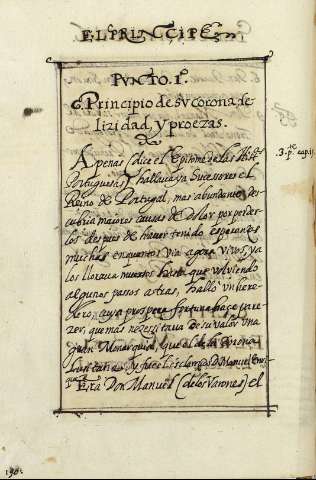 EL PRINCIPE
PUNTO. 1º
Principio de su corona, fe
lizidad, y proezas.
Apenas (dice el Epitome de las Hist.as
Portuguesas) hallava ya Sucesores el
Reino de Portugal, mas abundante des
cubria maiores causas de dolor por perder
los despues de haver tenido esperanzas
muchas en quantos via agora vivos, ya
los llorava muertos hasta que volviendo
algunos passos atras, halló un here
dero, cuya prospera fortuna hace pare
zer, que mas necessitava de su valor una
gran Monarquia, que al de la Corona
Lusitana, y fue el esclarezido D. Manuel
Era Don Manuel (de los Varones) el
.3. p.te cap. 15
190.